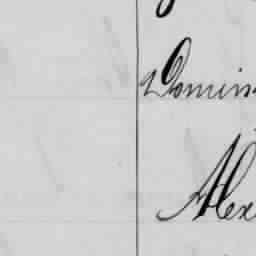 Domin
Alex